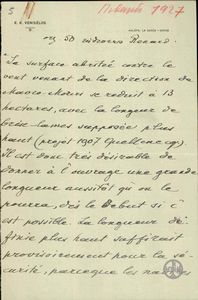 5
1927
E. K. VENISÉLOS
"La surface abritée contre le
vent venant de la direction de
se reduit à 13
hectares, avec la longueur de
brise-lames supposée plus
haut (projet 1907 Quellennec).
Il est donc très désirable de
donner à l'ouvrage une grande
longueur aussitôt qu'on le
pourra, dès le debut si c'
est possible. La longueur dé-
finie plus haut suffirait
provisoirement pour la sé-
curité, parceque les